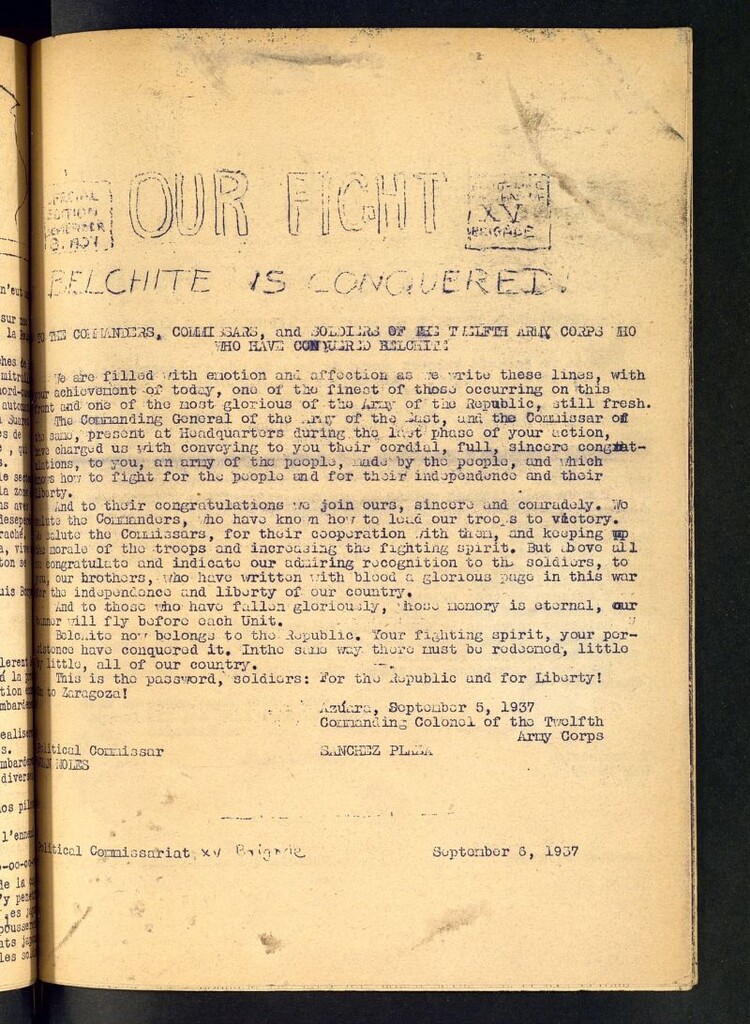 OUR FIGHT
SPECIAL
EDITION
XV
BRIGADE
BELCHITE IS CONQUERED!
TO THE COMMANDERS, COMMISSARS, and SOLDIERS OF THE TWELFTH ARMY CORPS WHO
WHO HAVE CONQUERED BELCHITE
We are filled with emotion and affection as we write these lines, with
your achievement of today, one of the finest of those occurring on this
front and one of the most glorious of the Army of the Republic, still fresh.
The Commanding General of the Army of the East, and the Commissar of
the same, present at Headquarters during the last phase of your action,
have charged us with conveying to you their cordial, full, sincere congrat-
ulations, to you, an army of the people, made by the people, and which
knows how to fight for the people and for their independence and their
liberty.
And to their congratulations we join ours, sincere and comradely. We
salute the Commanders, who have known how to lead our troops to victory.
We salute the Commissars, for their cooperation with them, and keeping up
the morale of the troops and increasing the fighting spirit. But above all
congratulate and indicate our admiring recognition to the soldiers, to
you, our brothers, who have written with blood a glorious page in this war
for the independence and liberty of our country.
And to those who have fallen gloriously, whose memory is eternal, our
banner will fly before each Unit.
Belchite now belongs to the Republic. Your fighting spirit, your per-
sistence have conquered it. Inthe same way there must be redeemed, little
by little, all of our country.
This is the password, soldiers: For the Republic and for Liberty!
On to Zaragoza!
Azuara, September 5, 1937
Commanding Colonel of the Twelfth
Army Corps
Political Commissar
SANCHEZ PLAZA
MOLES
Political Commissariat XV Brigade
September 6, 1937